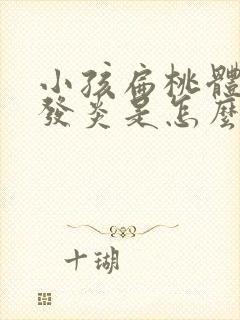 小孩扁桃體
發炎是怎麼
十瑚